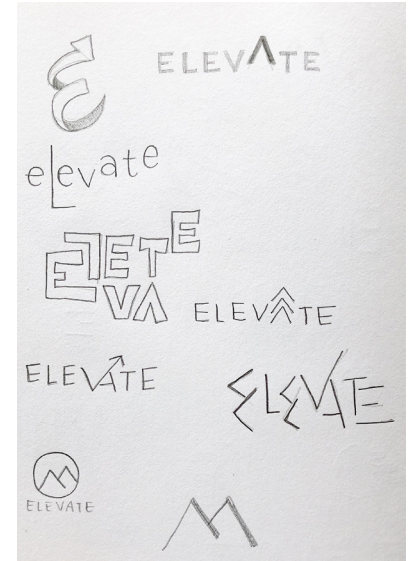 ELEVATE
elevate
ELEVATE
ELEVATE
ELEVATE
ELEVATE
ELEVATE